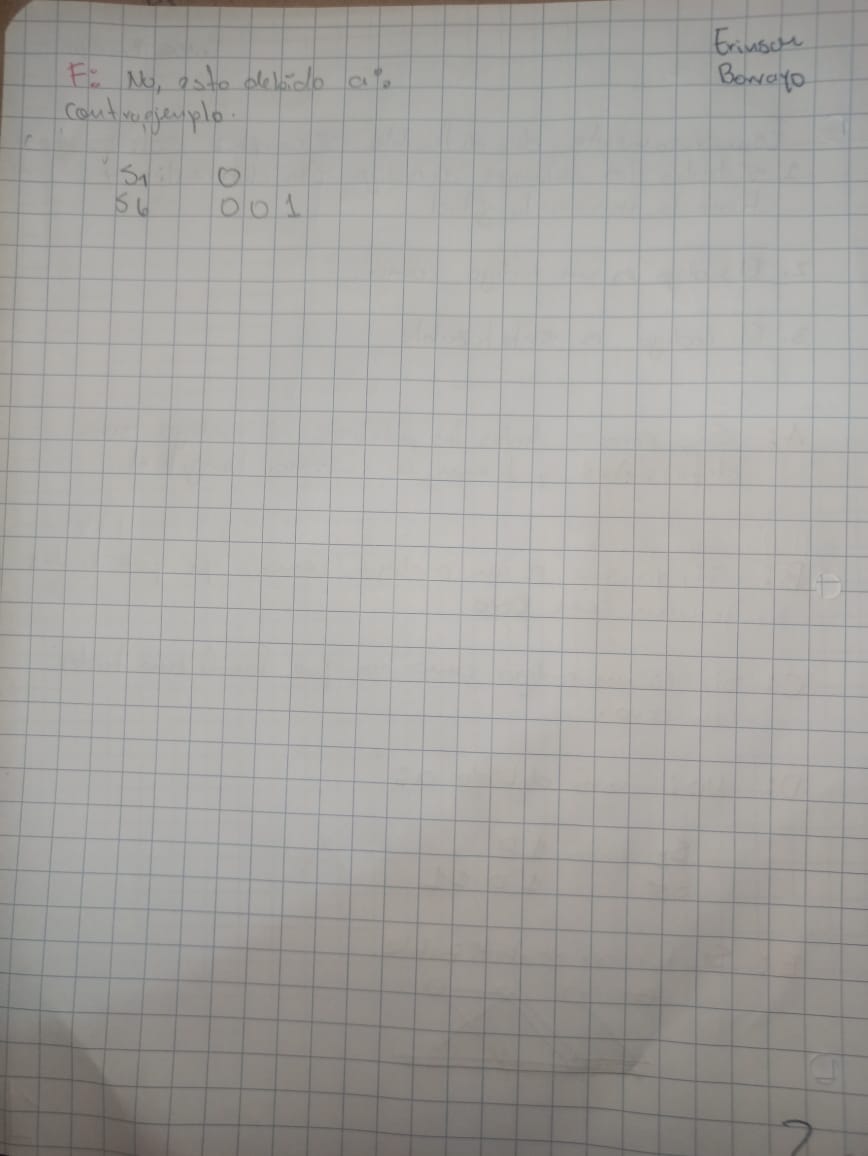 Erinson
Borrayo
F: No, esto debido a:
contraejemplo.
S1 0
S6 0 0 1
2